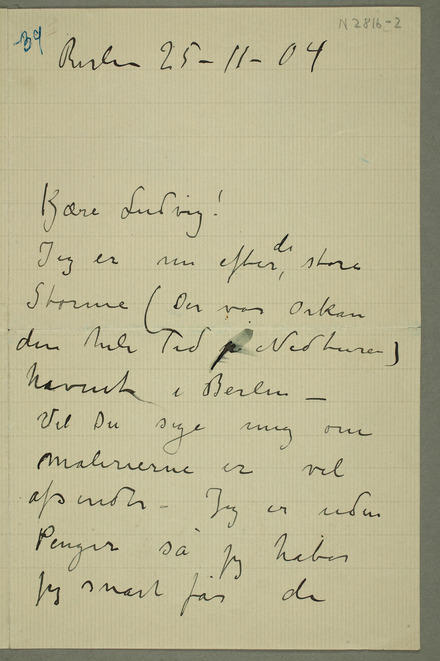 N 2816-2
34
Berlin 25-11-04
Kjære Ludvig!
Jeg er nu efter de store
Storme (Der var Orkan
den hele Tid på Nedturen)
havnet i Berlin –
Vil Du sige mig om
malerierne er vel
afsendt – Jeg er uden
Penger så jeg håber
jeg snart får de